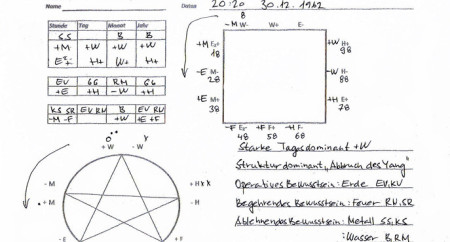 Name
Datum 20:20 30.12.1942
Stunde Tag Monat Jahr
S.S B B
+M +W +W +W
H+ W+ H+
EV GG RM GG
+E +H -W +H
KS SR EV RH B EV RH
-M -F +W +E +F
8
-M W- W+ E-
+M E+
18
-E M-
28
+E M+
38
+W H+
98
-W H-
88
+H E+
78
-F E- +F F+ -H F-
48 58 68
Starke Tagesdominant +W
Strukturdominant „Abbruch des Yang“
Operatives Bewusstsein: Erde EV,KV
Begehrendes Bewusstsein: Feuer RH,SR
Ablehnendes Bewusstsein: Metall SS,KS
: Wasser B,RM
+W -W
- M
+ M
+ H X X
- H
- E
+ F